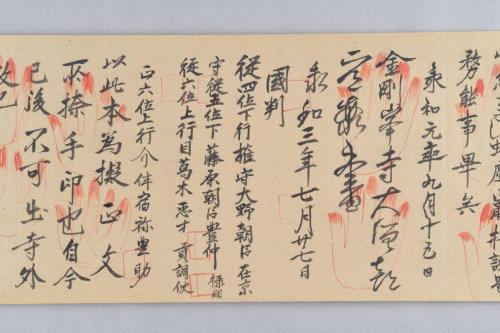 務能事畢矣
承和元年九月十五日
金剛峯寺大僧都
承和三年七月廿七日
國判
従四位下行権守大野朝臣在京
守従五位下藤原朝臣豊仲
従六位上行目葛木恵才 貢調使
正六位上行介伴宿祢豊助
以此本為擬正文
所捺手印也自今
已後不可出寺外